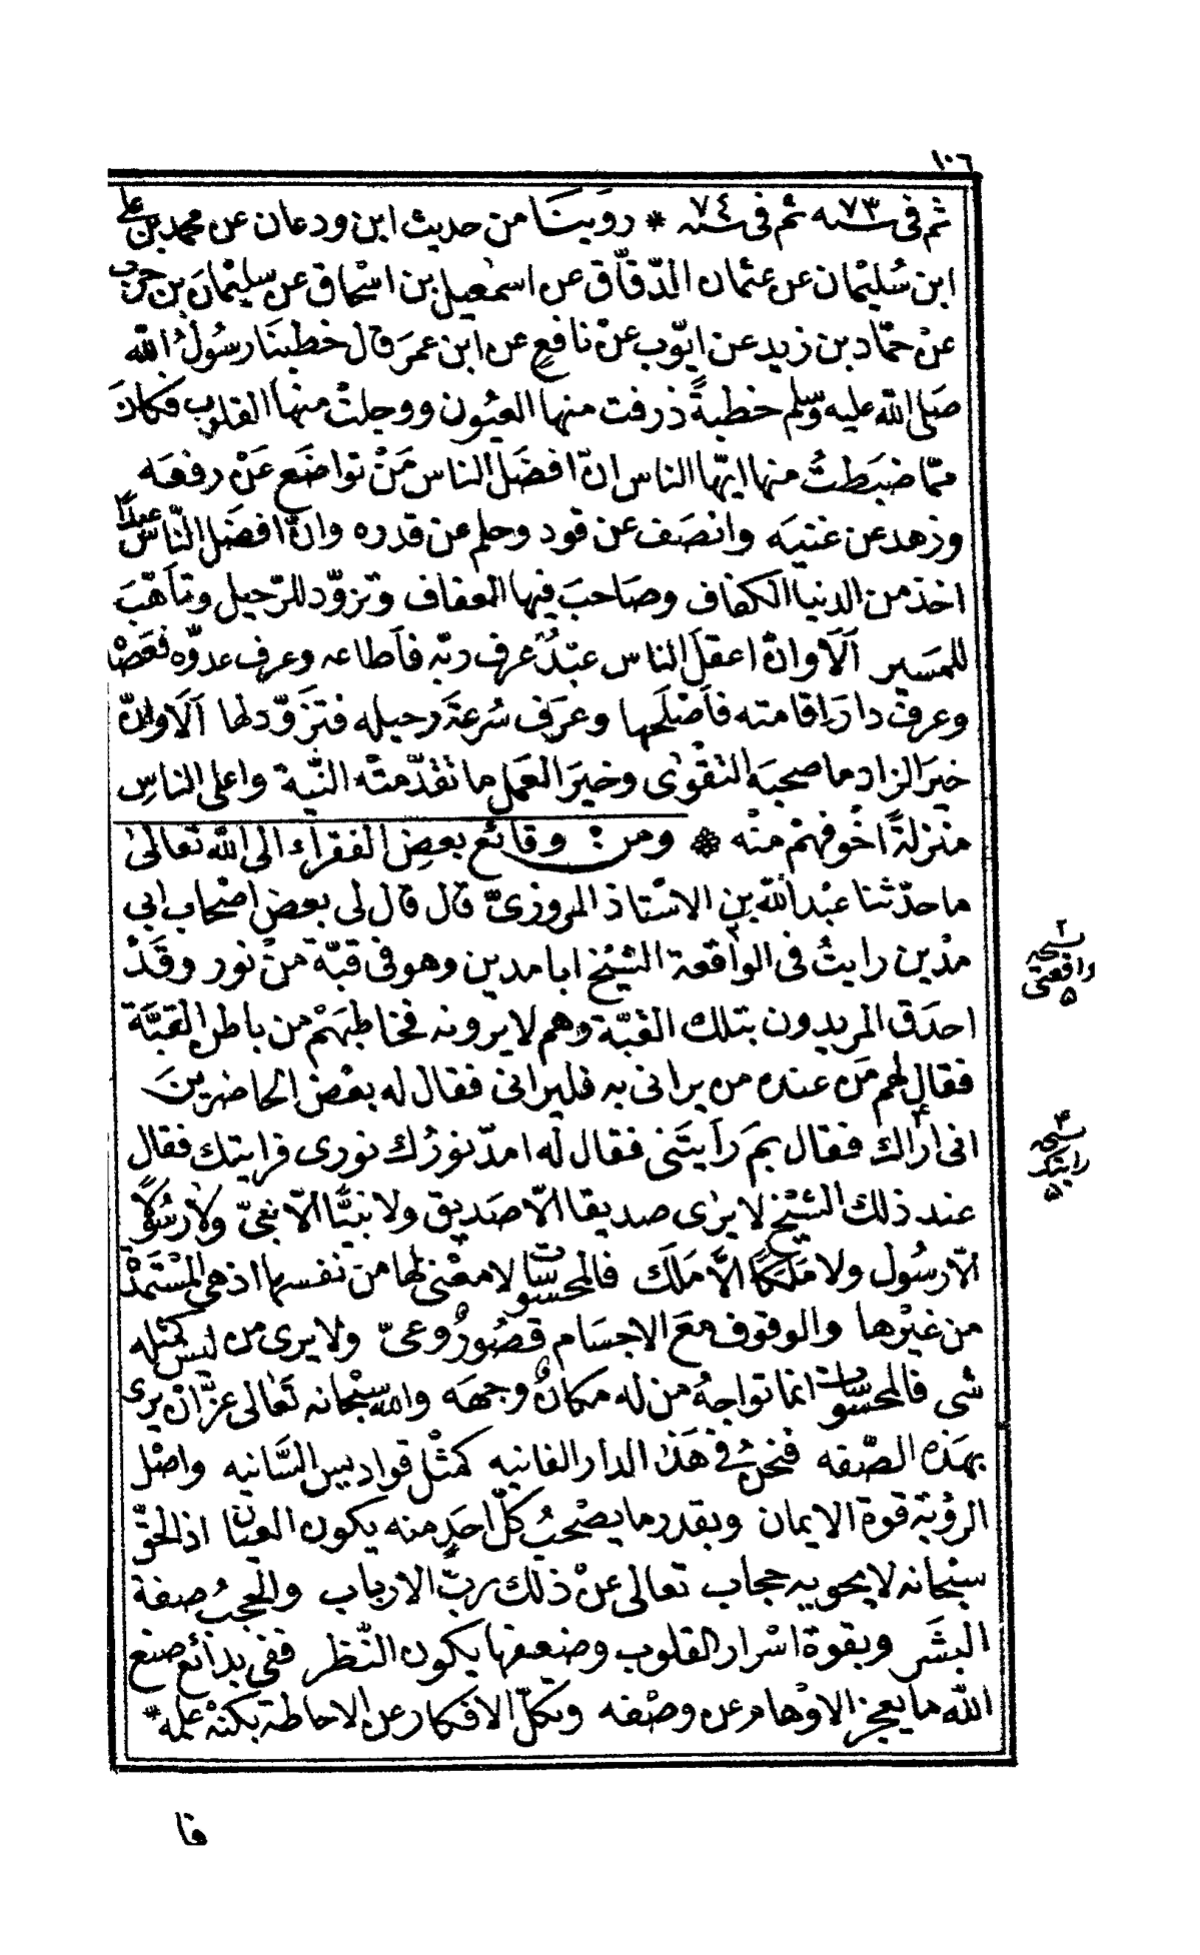 ١٠٦
ثم فى سنه ٧٣ ثم فى سنه ٧٤ * روينا من حديث ابن ودعان عن محمد بن على
ابن سُليمان عن عثمان الدّقّاق عن اسمعيل بن اسحاق عن سليمان بن حرب
عن حمّاد بن زيد عن ايّوب عن نافع عن ابن عمرَ قال خطبنا رسُول الله
صَلى الله عليه وسلم خطبةً ذرفت منها العيُون ووجلتْ منها القلوب فكان
ممّا ضبَطتُ منها ايّها الناس انّ افضَل الناس مَنْ تواضَع عَنْ رفعَه
وزهد عن غنيَه وانصَف عن قود وحلم عن قدره وانّ افضَل النّاس عبدٌ
اخذ من الدنيا الكفاف وصَاحبَ فيها العفاف وتزوّد للرّحيل وتأهّبَ
للمسَير ألا وانّ اعقلَ الناس عبْدٌ عرف ربّه فأطاعه وعرف عدوّه فعَصَاه
وعرف دارَ اقامته فأصْلَحها وعرَف سُرعَة رحيله فتزَوّد لها ألَا وانّ
خيرَ الزاد ما صحبَه التقوٰى وخيرَ العَمل ما تقدّمتْه النّية واعلى الناسِ
منْزلةً اخْوفهمْ منْه * ومن: وقائع بعض الفقراء الى الله تعالى
ما حدّثنا عبْد الله بن الاسْتاذ المروزىّ قال قال لى بعض اصْحاب ابى
مدْين رايتُ فى الواقعة الشيْخ ابا مدين وهو فى قبّة منْ نور وقَدْ
احدَق المريدون بتلك القبّة وهم لا يرونه فخاطبَهمْ من باطن القبَّة
فقال لهم مَن عنده من يرانى به فليرانى فقال له بعْض الحاضرينَ
انى اراك فقال بمَ رأيتَنى فقال له امدّ نورُك نورى فرايتك فقال
عند ذلك الشيْخ لا يرٰى صديقا الّا صَديق ولا نبيًّا الّا نبىّ ولا رسُولًا
الّا رسُول ولا ملَكًا الّا مَلَك فالمحسوسات لا معْنى لها من نفسها اذ هى المسْتمدْ
من غيْرها والوقوف معَ الاجسَام قصُورٌ وعىّ ولا يرى من ليْس كمثله
شى فالمحسوسات انما تواجهُ من له مكانٌ وجهَه والله سبْحانه تَعالى عزّ انْ يرى
بهَذه الصّفه فنحنُ فى هَذه الدار الفانيه كمثْل قواديس السَّانيه واصْل
الرؤية قوة الايمان وبقدر ما يصْحبُ كلّ احَدٍ منه يكون العيان اذ الحقّ
سبْحانه لا يحويه حجاب تعالى عنْ ذلك ربّ الارباب والحجبُ صفة
البشَر وبقوة اسْرار القلوب وضعفها يكون النّظر ففى بدائع صنع
الله ما يعجز الاوْهام عن وصْفه وتكلّ الافكار عن الاحاطة بكنْه علمه *
نسخه
واقعتى
نسخه
رايتك
فا